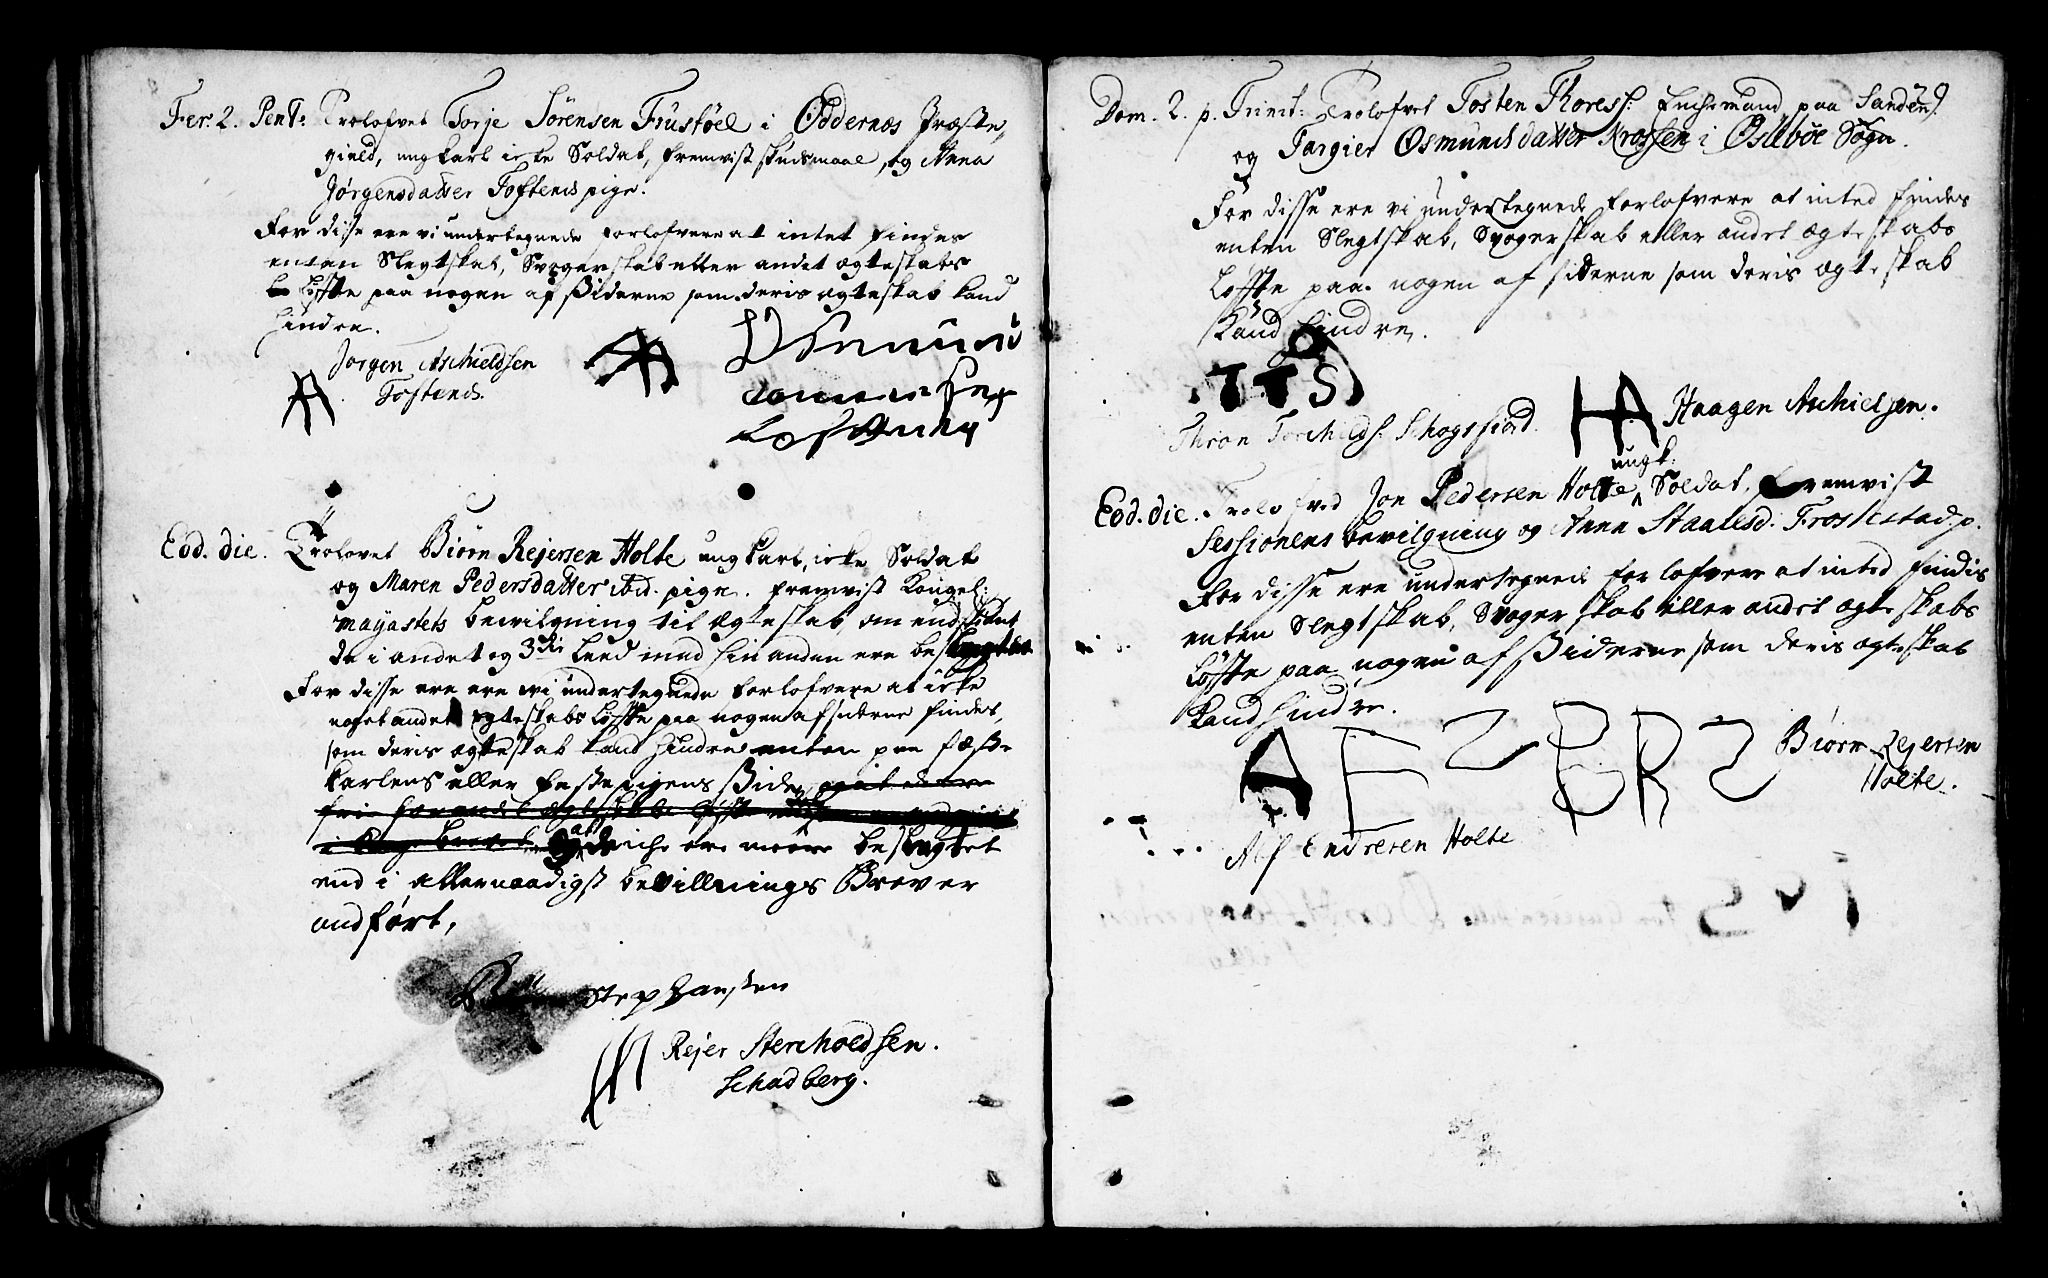 Fer: 2. Pent: Trolofvet Torje Sörensen Frustöel i Oddernæs Præste-
gield, ungkarl icke Soldat, fremvist skudsmaal, og Anna
Jörgensdatter Toftenes pige.
For disse ere vi undertegnede forlofvere at intet findes
enten Slegtskab, Svogerskab eller andet ægteskabs
Löffte paa nogen af Siderne som deris ægteskab kand
hindre.
Jorgen Aschieldsen
Toftenes.
Eod. die. Trolovet Biörn Rejersen Holte ungkarl, icke Soldat
og Maren Pedersdatter ibid. pige. fremvist Kongel:
mayästets bewilgning til ægteskab, om endskiönt
de i andet og 3die Leed med hinanden ere beslegtet
For disse ere ere wi undertegnede forlofvere at icke
noget andet ægteskabs Löffte paa nogen af siderne findes,
som deris ægteskab kand hindre enten paa fæste
karlens eller festepigens Side,
at de iche ere meere beslegtet
end i allernaadigst bevillnings Brever
andfört,
Stephansen
Rejer Sterchoedsen.
Schadberg.
29
Dom. 2. p. Trinit: Trolofvet Tosten Thoress: Enchemand paa Sanden
og Targier Osmundsdatter Krossen i Ösleböe Sogn.
For disse ere vi undertegnede forlofvere at inted findes
enten Slegtskab, Svogerskab eller andet ægteskabs
Löffte paa nogen af siderne som deris ægteskab
Kand hindre.
T T S
Thron Torchilds: Schogsfiord.
HA Haagen Aschielsen.
ungk:
Eod. die. Trolofved Jon Pedersen Holte Soldat, fremvist
Sessionens bevilgning og Anna Staalesd. Frostestad. p.
For disse ere undertegnede forlofvere at inted findis
enten Slegtskab, Svogerskab eller andet ægteskabs
Löffte paa nogen af Siderne som deris ægteskab
Kand hindre.
A E S B R S Biörn Rejersen
Holte.
Alf Endresen Holte